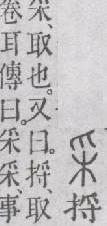 采捋
采、取也。又曰。捋、取
卷耳傳曰。采采、事